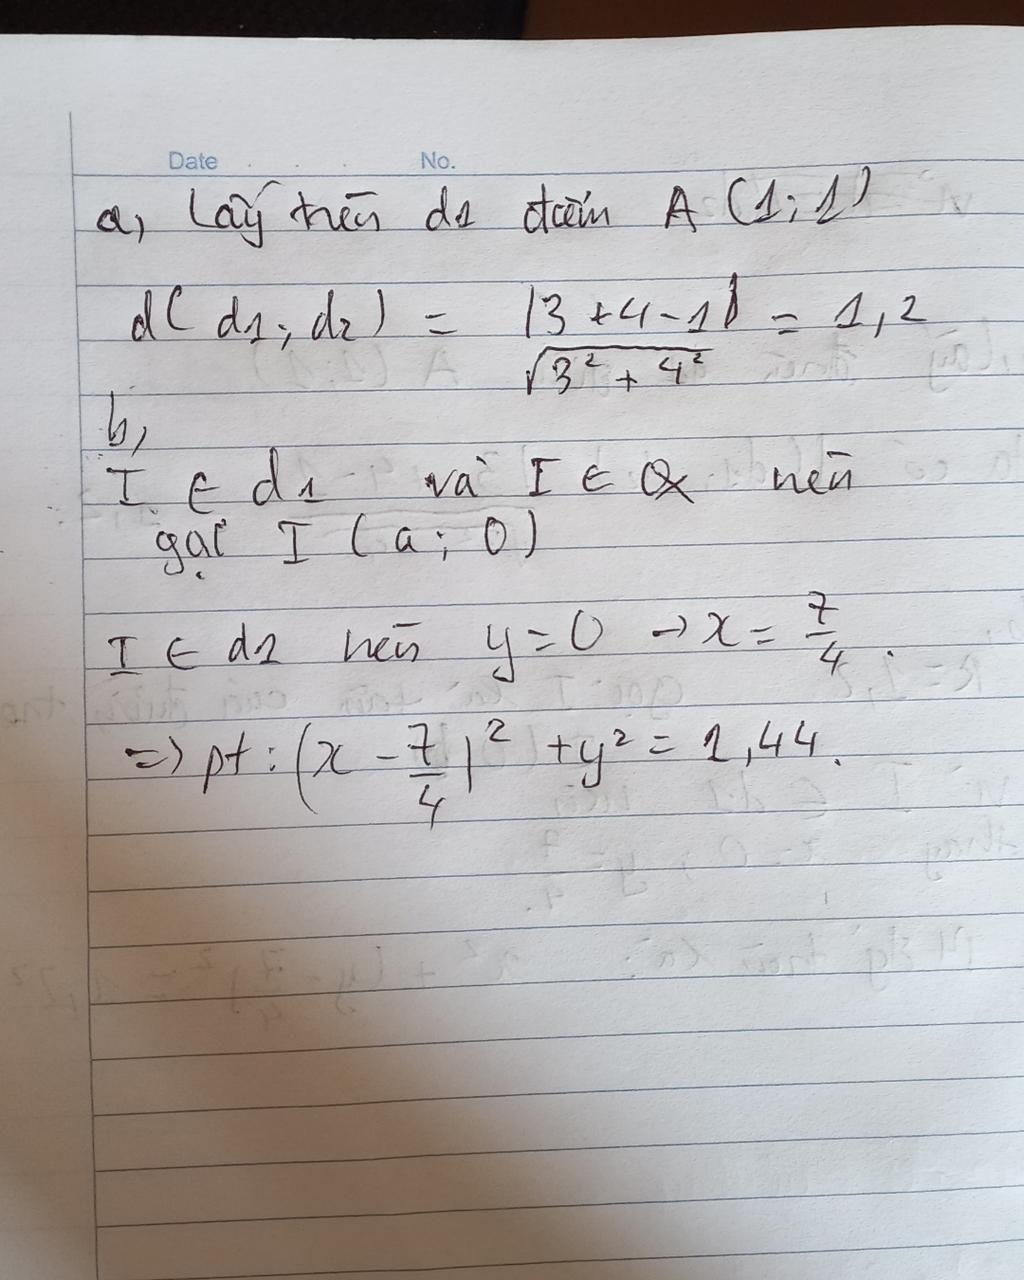 Date No.
a, Lấy trên d1 điểm A (1; 1)
d( d1; d2 ) = |3 + 4 - 1| / √3² + 4² = 1,2
b,
I ∈ d1 và I ∈ Ox nên
gọi I ( a ; 0 )
I ∈ d1 nên y = 0 → x = 7/4 .
=> pt : (x - 7/4)² + y² = 1,44.